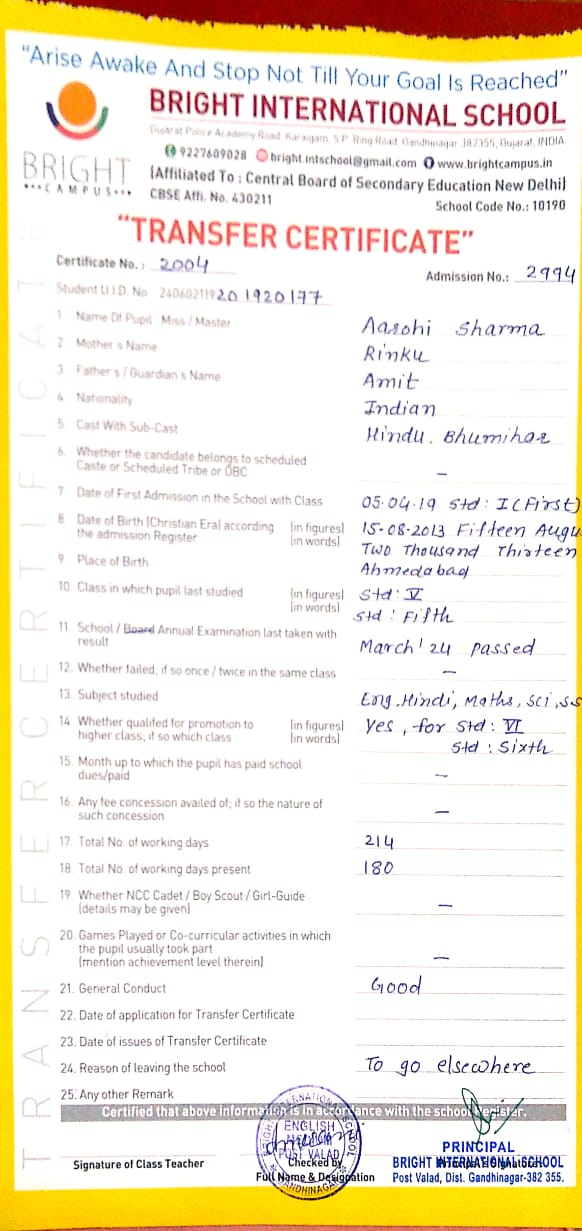 "Arise Awake And Stop Not Till Your Goal Is Reached"
BRIGHT INTERNATIONAL SCHOOL
Gujarat Police Academy Road, Karaigam, S.P. Ring Road, Gandhinagar 382355, Gujarat, INDIA
9227609028 bright.intschool@gmail.com www.brightcampus.in
BRIGHT
CAMPUS
(Affiliated To : Central Board of Secondary Education New Delhi)
CBSE Affi. No. 430211
School Code No.: 10190
"TRANSFER CERTIFICATE"
Certificate No. : 2004
Admission No.: 2994
Student U.I.D. No 240602119 201920177
1 Name Of Pupil Miss / Master Aarohi Sharma
2 Mother s Name Rinku
3 Father s / Guardian s Name Amit
4. Nationality Indian
5. Cast With Sub-Cast Hindu. Bhumihar
6. Whether the candidate belongs to scheduled
Caste or Scheduled Tribe or OBC –
7 Date of First Admission in the School with Class 05.04.19 Std : I (First)
8. Date of Birth (Christian Era) according (in figures) 15-08-2013 Fifteen Augu
the admission Register (in words) Two Thousand Thirteen
9 Place of Birth Ahmedabad
10. Class in which pupil last studied (in figures) Std : V
(in words) Std : Fifth
11 School / Board Annual Examination last taken with
result March' 24 Passed
12. Whether failed; if so once / twice in the same class –
13. Subject studied Eng, Hindi, Maths, Sci, SS
14 Whether qualifed for promotion to (in figures) Yes, for Std : VI
higher class; if so which class (in words) Std : Sixth
15. Month up to which the pupil has paid school
dues/paid –
16. Any fee concession availed of; if so the nature of
such concession –
17. Total No. of working days 214
18. Total No. of working days present 180
19. Whether NCC Cadet / Boy Scout / Girl-Guide
(details may be given) –
20. Games Played or Co-curricular activities in which
the pupil usually took part
(mention achievement level therein) –
21. General Conduct Good
22. Date of application for Transfer Certificate
23. Date of issues of Transfer Certificate
24. Reason of leaving the school To go elsewhere
25. Any other Remark
Certified that above information is in accordance with the school register.
BRIGHT INTERNATIONAL SCHOOL
ENGLISH
MEDIUM
POST VALAD
GANDHINAGAR
Signature of Class Teacher
Checked by
Full Name & Designation
PRINCIPAL
Principal's Signature
BRIGHT INTERNATIONAL SCHOOL
Post Valad, Dist. Gandhinagar-382 355.
TRANSFER CERTIFICATE